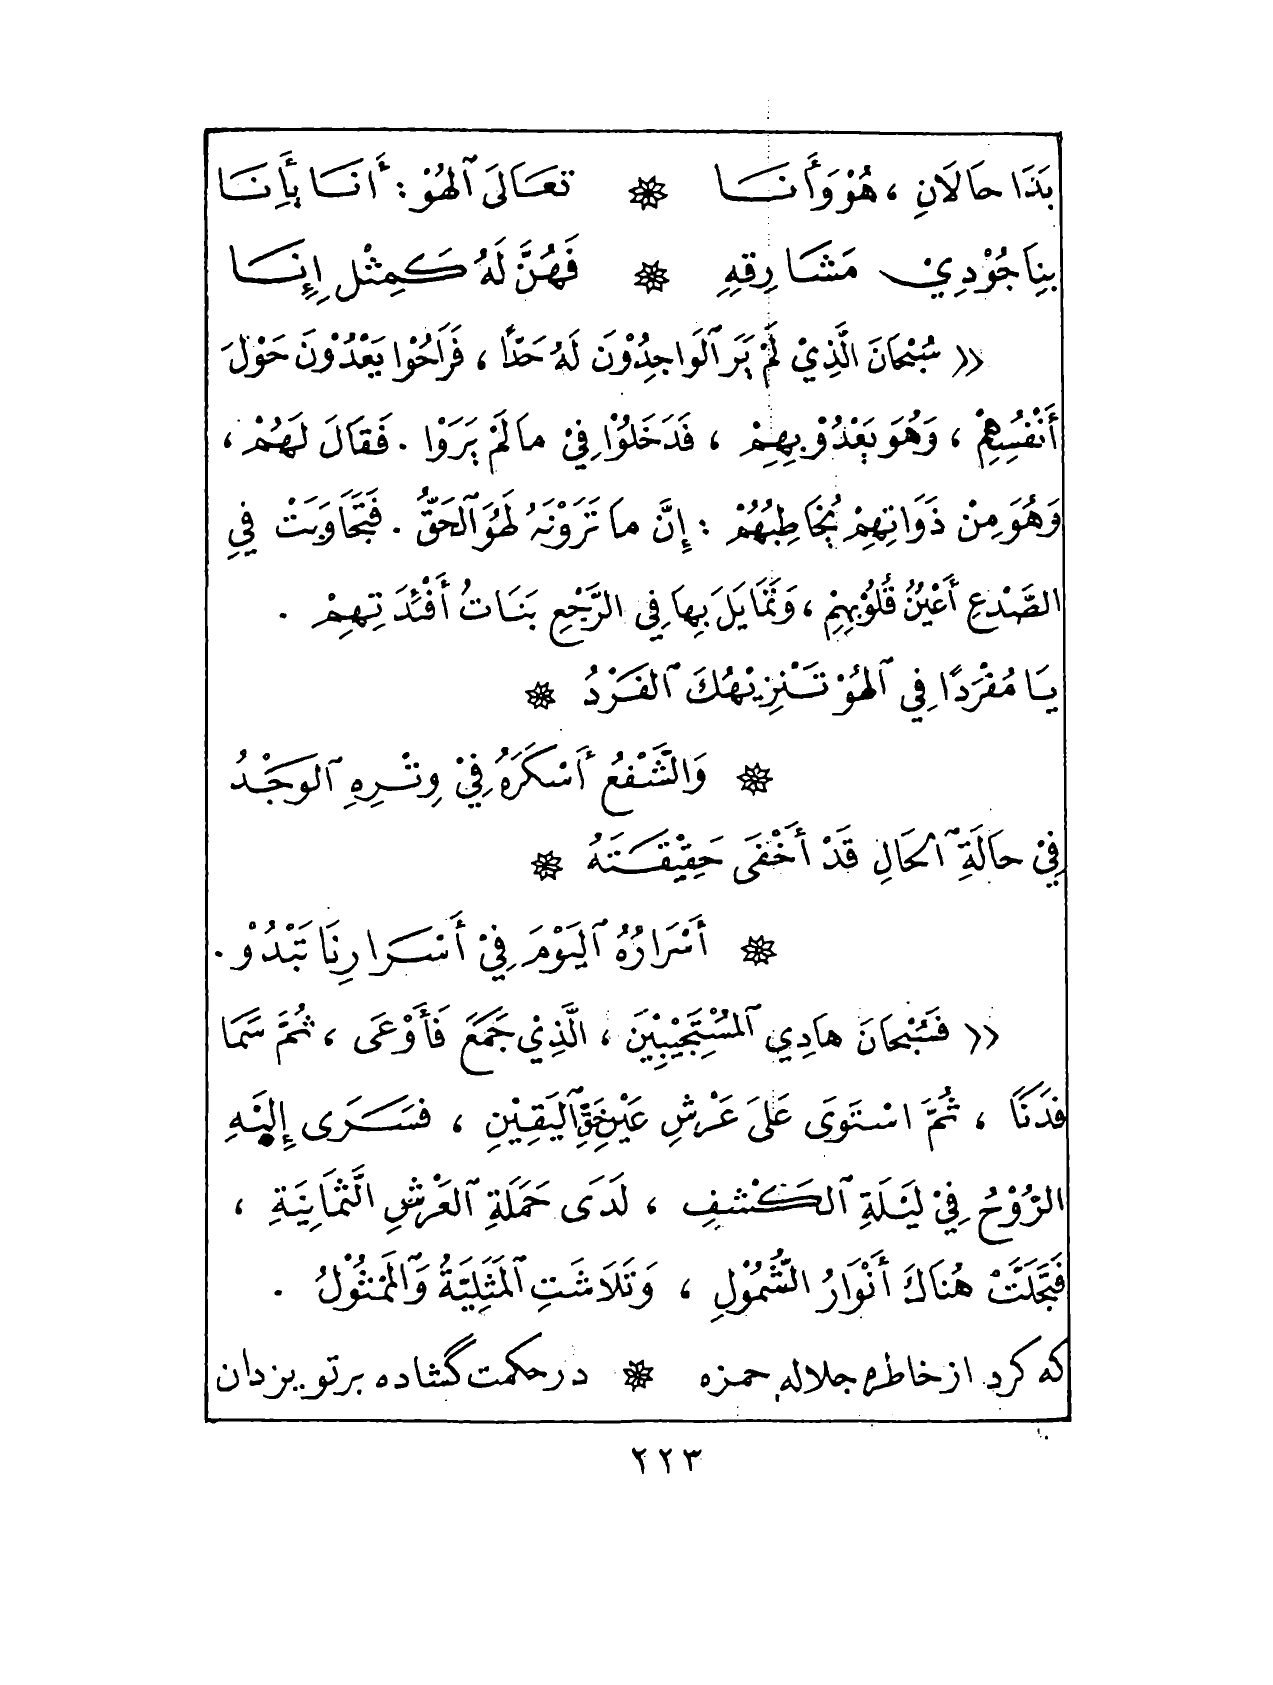 بَدَا حَالَانِ ، هُوْ وَأَنَا ۞ تَعَالَى ٱلْهُوْ : أَنَا بِأَنَا
بِنَا جُوْدِي مَشَارِقِهِ ۞ فَهُنَّ لَهُ كَمِثْلِ إِنَا
« سُبْحَانَ الَّذِيْ لَمْ يَرَ ٱلْوَاجِدُوْنَ لَهُ حَدًّا ، فَرَاحُوْا يَعْدُوْنَ حَوْلَ
أَنْفُسِهِمْ ، وَهُوَ يَعْدُوْ بِهِمْ ، فَدَخَلُوْا فِيْ مَا لَمْ يَرَوْا . فَقَالَ لَهُمْ ،
وَهُوَ مِنْ ذَوَاتِهِمْ يُخَاطِبُهُمْ : إِنَّ مَا تَرَوْنَهُ لَهُوَ ٱلْحَقُّ . فَتَجَاوَبَتْ فِي
الصَّدْعِ أَعْيُنُ قُلُوْبِهِمْ ، وَتَمَايَلَ بِهَا فِي الرَّجْعِ بَنَاتُ أَفْئِدَتِهِمْ .
يَا مُفْرَدًا فِي ٱلْهُوْ تَنْزِيْهُكَ ٱلْفَرْدُ ۞
۞ وَالشَّفْعُ أَسْكَرَهُ فِيْ وِتْرِهِ ٱلْوَجْدُ
فِيْ حَالَةِ ٱلْحَالِ قَدْ أَخْفَى حَقِيْقَتَهُ ۞
۞ أَسْرَارُهُ ٱلْيَوْمَ فِيْ أَسْرَارِنَا تَبْدُوْ .
« فَسُبْحَانَ هَادِي ٱلْمُسْتَجِيْبِيْنَ ، الَّذِيْ جَمَعَ فَأَوْعَى ، ثُمَّ سَمَا
فَدَنَا ، ثُمَّ اسْتَوَى عَلَى عَرْشِ عَيْنِ حَقِّ ٱلْيَقِيْنِ ، فَسَرَى إِلَيْهِ
الرُّوْحُ فِيْ لَيْلَةِ ٱلْكَشْفِ ، لَدَى حَمَلَةِ ٱلْعَرْشِ الثَّمَانِيَةِ ،
فَتَجَلَّتْ هُنَاكَ أَنْوَارُ الشُّمُوْلِ ، وَتَلَاشَتِ ٱلْمَثَلِيَّةُ وَٱلْمَمْثُوْلُ .
که کرد از خاطره جلاله حمزه ۞ در حکمت گشاده بر تو یزدان
٢٢٣